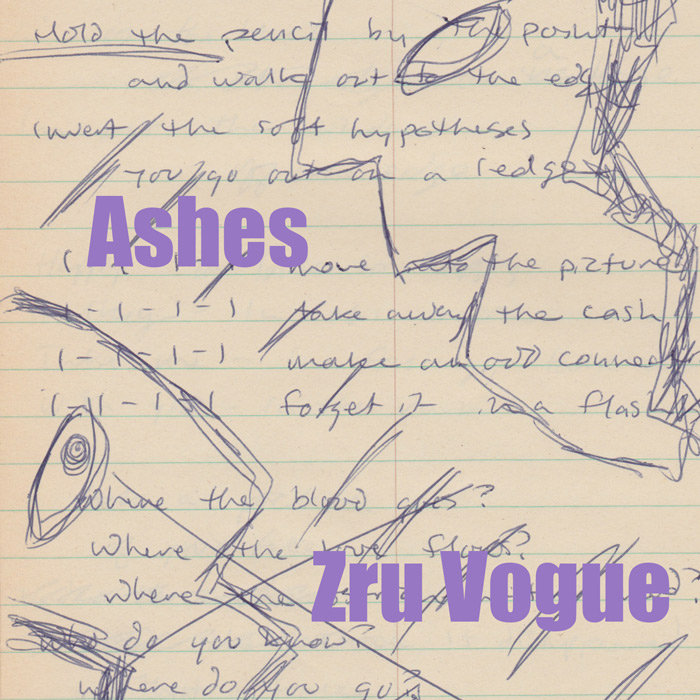 Hold the pencil by the point
and walk out to the edge
invert the soft hypotheses
you go out on a ledge
Ashes
1 - 1 - 1 - 1 move into the picture
1 - 1 - 1 - 1 take away the cash
1 - 1 - 1 - 1 make an odd connect
1 - 1 - 1 - 1 forget it in a flash
Where the blood goes?
Where the love flows?
Zru Vogue
where the
Who do you know?
where do you go?